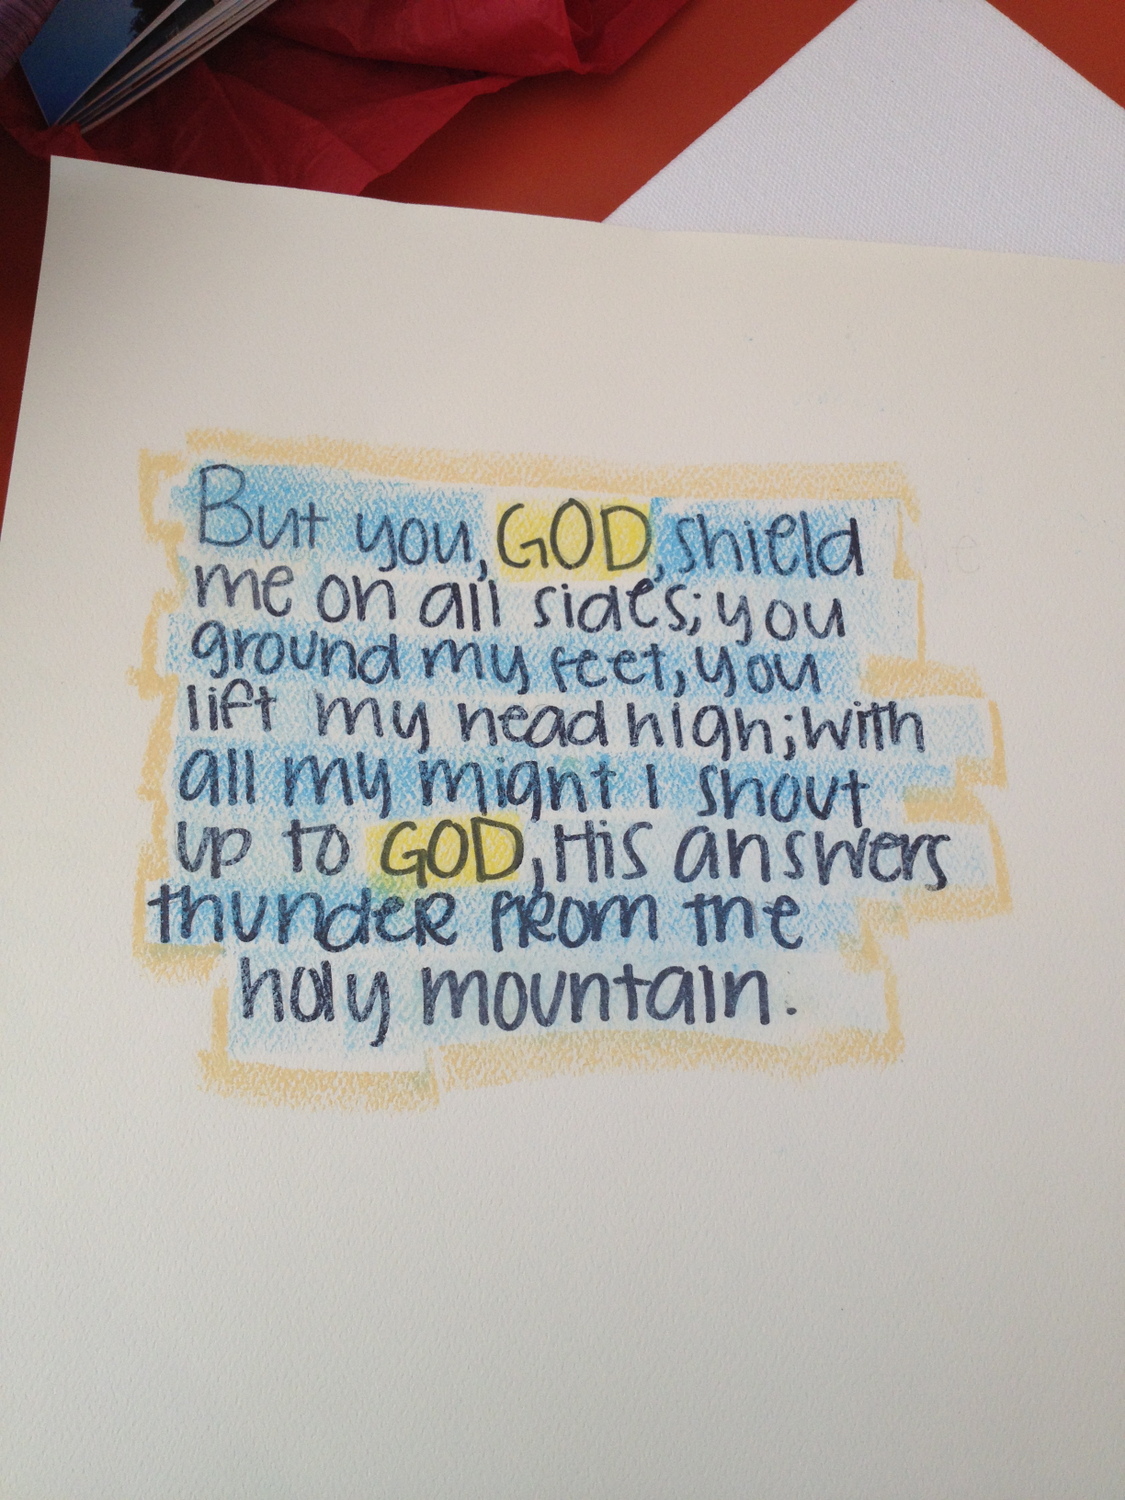 But you, GOD, shield
me on all sides; you
ground my feet, you
lift my head high; with
all my might I shout
up to GOD, His answers
thunder from the
holy mountain.